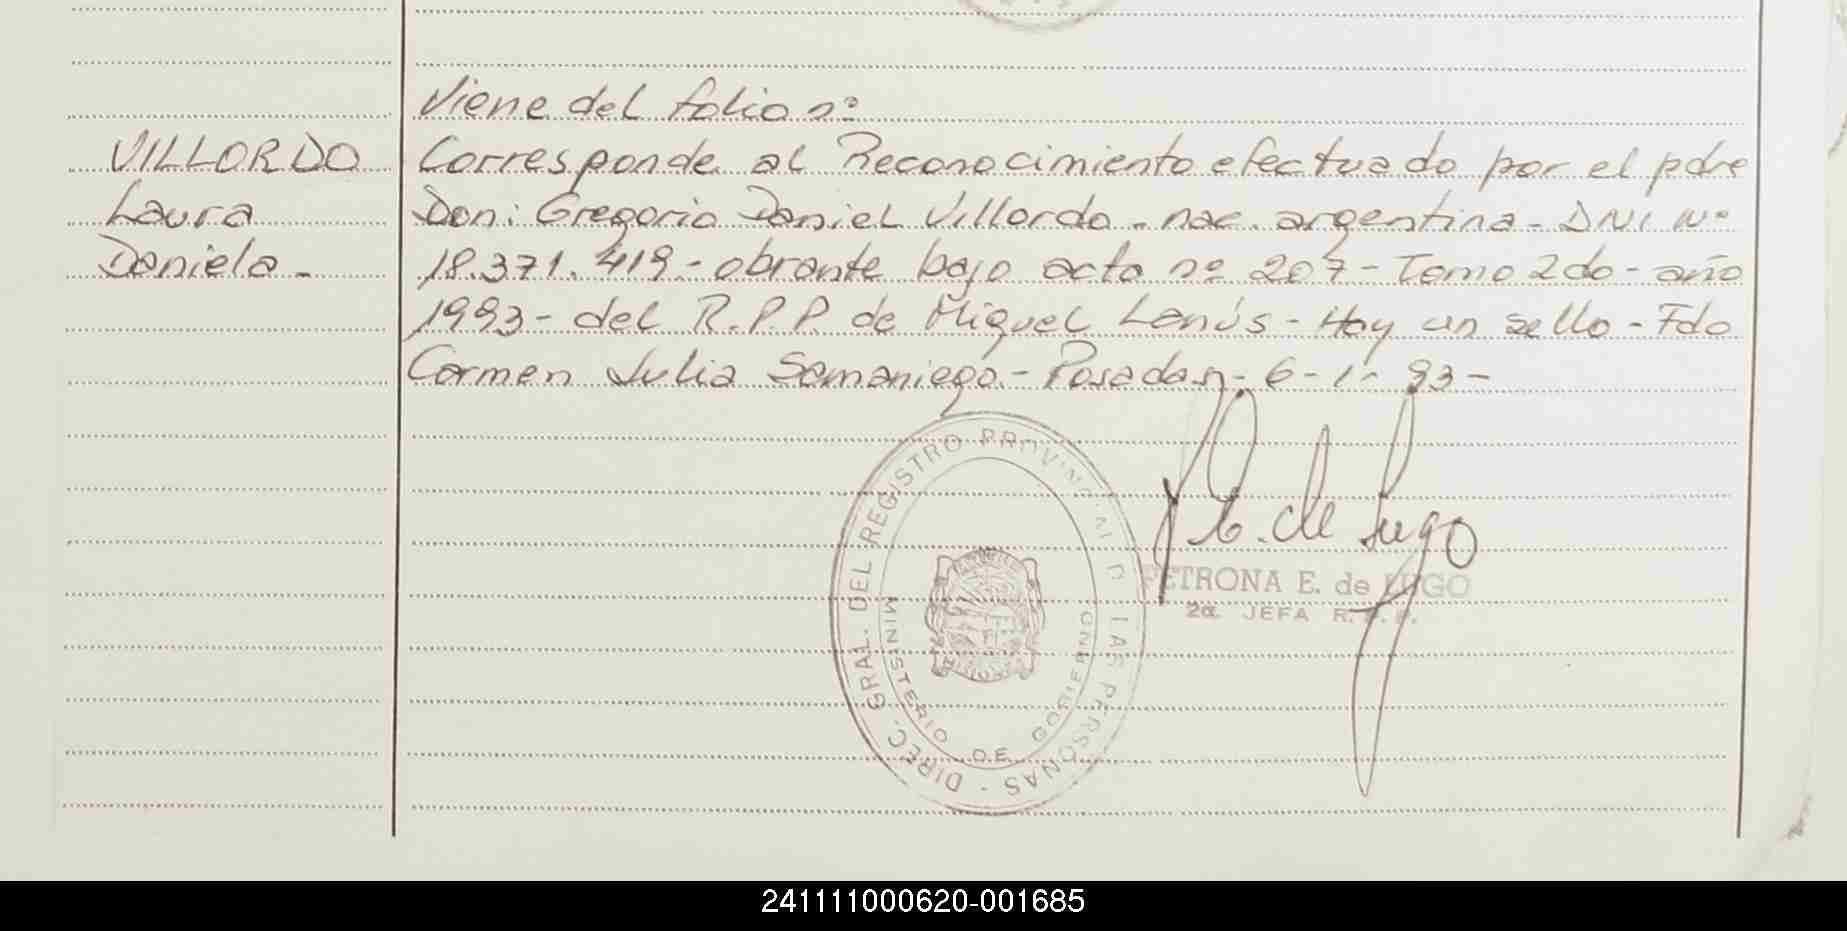 Viene del folio nº
VILLORDO
Laura
Daniela.-
Corresponde al Reconocimiento efectuado por el pdre
Don: Gregorio Daniel Villordo - nac. argentina - DNI Nº
18.371.419 - obrante bajo acta nº 207 - Tomo 2do - año
1993 - del R.P.P. de Miguel Lanús - Hay un sello - Fdo
Carmen Julia Samaniego - Posadas, - 6 - 1 - 93 -
DIREC. GRAL. DEL REGISTRO PROVINCIAL D LAS PERSONAS -
MINISTERIO DE GOBIERNO
P. E. de Lugo
PETRONA E. de LUGO
2a. JEFA R.P.P.
241111000620-001685